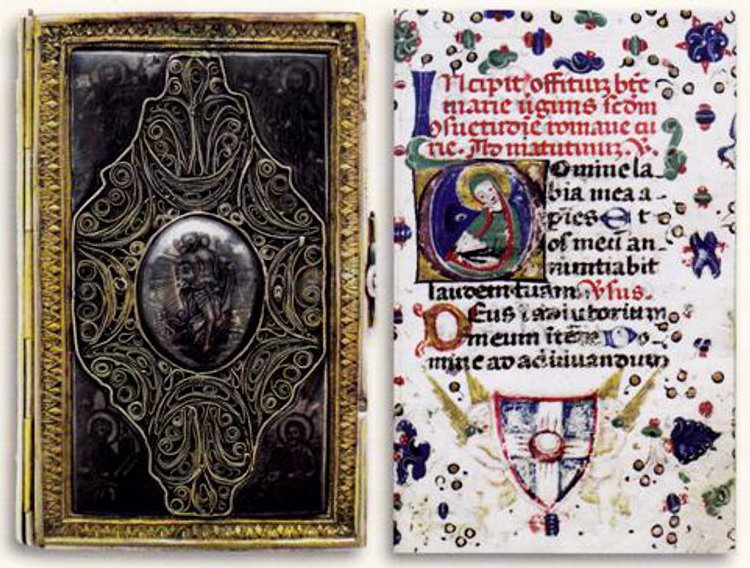 INcipit offitiuz bte
marie uginis scdm
osuetudie romane cu
rie. Ad matutinuz. V.
Domine la
bia mea a
pies et
os meu an
nuntiabit
laudem tuam. Vsus.
DEus i adiutorium
meum itede Do
mine ad adiuuandum